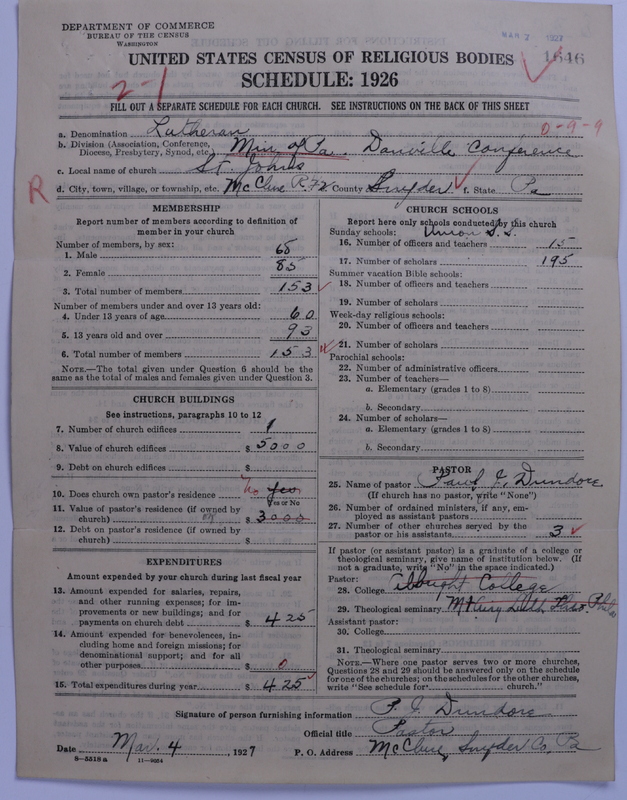 DEPARTMENT OF COMMERCE
BUREAU OF THE CENSUS
WASHINGTON
MAR 7 1927
1646
UNITED STATES CENSUS OF RELIGIOUS BODIES
SCHEDULE: 1926
2-1
FILL OUT A SEPARATE SCHEDULE FOR EACH CHURCH. SEE INSTRUCTIONS ON THE BACK OF THIS SHEET
0-9-9
a. Denomination Lutheran
b. Division (Association, Conference, Diocese, Presbytery, Synod, etc.) Min. of Pa. Danville Conference
c. Local name of church St. Johns
R
d. City, town, village, or township, etc. McClure R.F. 2 County Snyder f. State Pa
MEMBERSHIP
Report number of members according to definition of
member in your church
Number of members, by sex:
1. Male 68
2. Female 85
3. Total number of members 153
Number of members under and over 13 years old:
4. Under 13 years of age 60
5. 13 years old and over 93
6. Total number of members 153
NOTE.—The total given under Question 6 should be
same as the total of males and females given under Question 3.
CHURCH BUILDINGS
See instructions, paragraphs 10 to 12
7. Number of church edifices 1
8. Value of church edifices $ 5000
9. Debt on church edifices $
10. Does church own pastor's residence No Yes
Yes or No
11. Value of pastor's residence (if owned by
church) $ 3000
12. Debt on pastor's residence (if owned by
church) $
EXPENDITURES
Amount expended by your church during last fiscal year
13. Amount expended for salaries, repairs,
and other running expenses; for im-
provements or new buildings; and for
payments on church debt $ 425
14. Amount expended for benevolences, in-
cluding home and foreign missions; for
denominational support; and for all
other purposes $ 0
15. Total expenditures during year $ 425
CHURCH SCHOOLS
Report here only schools conducted by this church
Sunday schools: Union S.S.
16. Number of officers and teachers 15
17. Number of scholars 195
Summer vacation Bible schools:
18. Number of officers and teachers
19. Number of scholars
Week-day religious schools:
20. Number of officers and teachers
21. Number of scholars
Parochial schools:
22. Number of administrative officers
23. Number of teachers—
a. Elementary (grades 1 to 8)
b. Secondary
24. Number of scholars—
a. Elementary (grades 1 to 8)
b. Secondary
PASTOR
25. Name of pastor Paul J. Dundore
(If church has no pastor, write "None")
26. Number of ordained ministers, if any, em-
ployed as assistant pastors
27. Number of other churches served by the
pastor or his assistants 3
If pastor (or assistant pastor) is a graduate of a college or
theological seminary, give name of institution below. (If
not a graduate, write "No" in the space indicated.)
Pastor:
28. College Albright College
29. Theological seminary Mt Airy Luth.
Assistant pastor:
30. College
31. Theological seminary
NOTE.—Where one pastor serves two or more churches,
Questions 28 and 29 should be answered only on the schedule
for one of the churches; on the schedules for the other churches,
write "See schedule for church."
Signature of person furnishing information P. J. Dundore
Official title Pastor
Date Mar. 4, 1927 P. O. Address McClure, Snyder Co, Pa
8—5518 a 11—9054